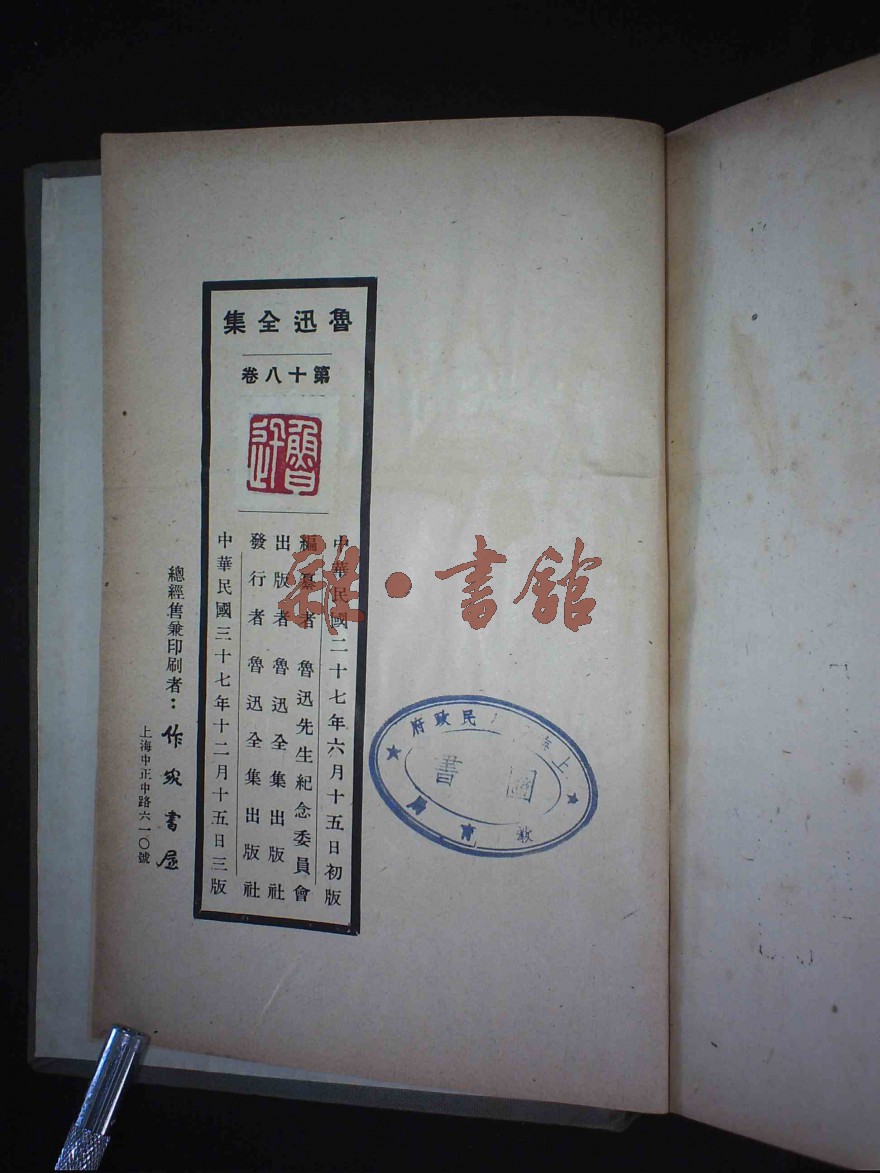 魯迅全集
第十八卷
魯迅
中華民國二十七年六月十五日初版
編纂者 魯迅先生紀念委員會
出版者 魯迅全集出版社
發行者 魯迅全集出版社
中華民國三十七年十二月十五日三版
總經售兼印刷者：作家書屋
上海中正中路六一〇號
雜·書館
上海 民政府
教育局
圖書